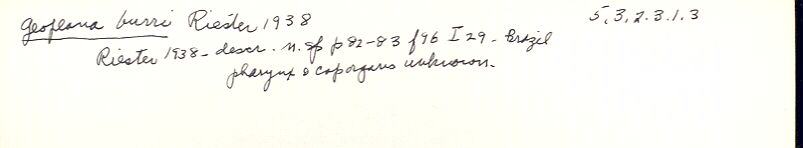 Geoplana burri Riester 1938 5.3.2.3.1.3
Riester 1938 - descr. n. sp p 82-83 f 96 I 29 - Brazil
pharynx & cop organs unknown.